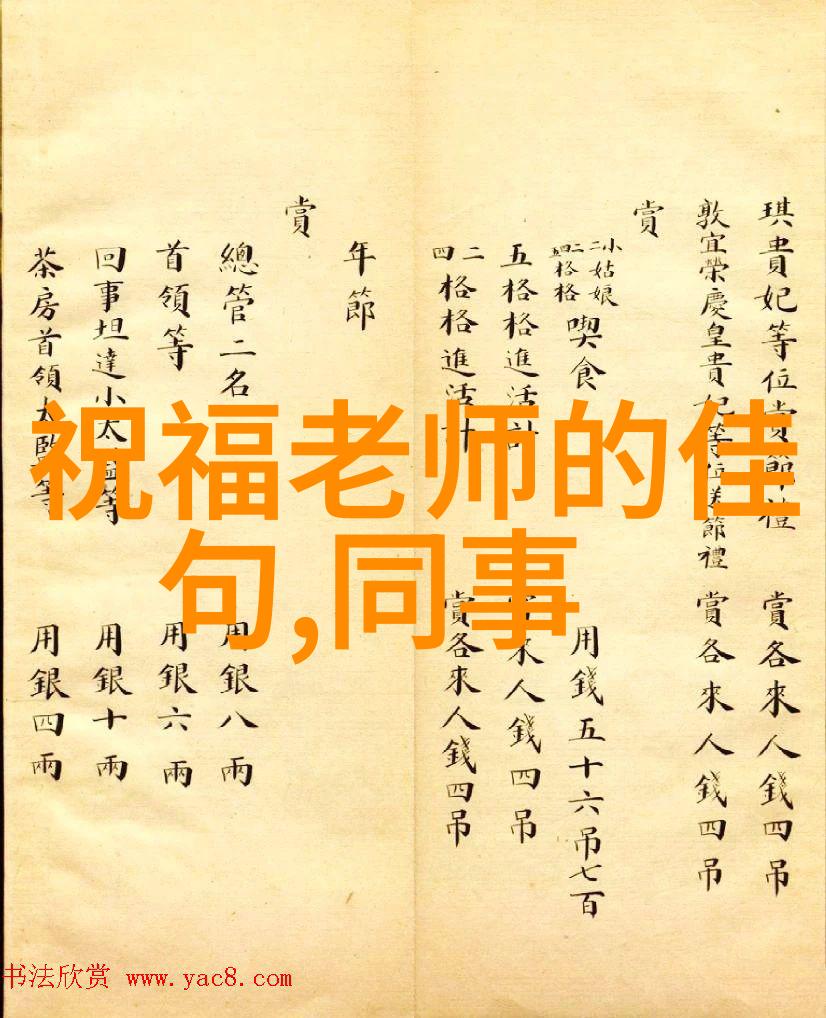 琪貴妃等位賞節禮 賞各來人錢四吊
敦宜榮慶皇貴妃等位送節禮 賞各來人錢四吊
賞
小姑娘
二二格格
四格格
喫食 用錢五十六吊七百
五格格進活計 賞來人錢四吊
二四格格進活計 賞各來人錢四吊
年節
賞
總管二名 用銀八兩
首領等 用銀六兩
回事坦達小太監等 用銀十兩
茶房首領太監等 用銀四兩
祝福老师的佳
句,同事
书法欣赏 www.yac8.com